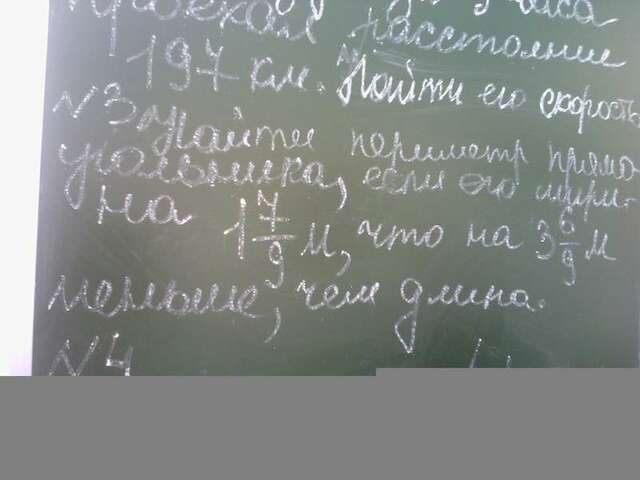 проехал расстояние
197 км. Найти его скорость
N3 Найти периметр прямо
угольника, если его шири-
на 1 7/9 м, что на 3 6/9 м
меньше, чем длина.
N4